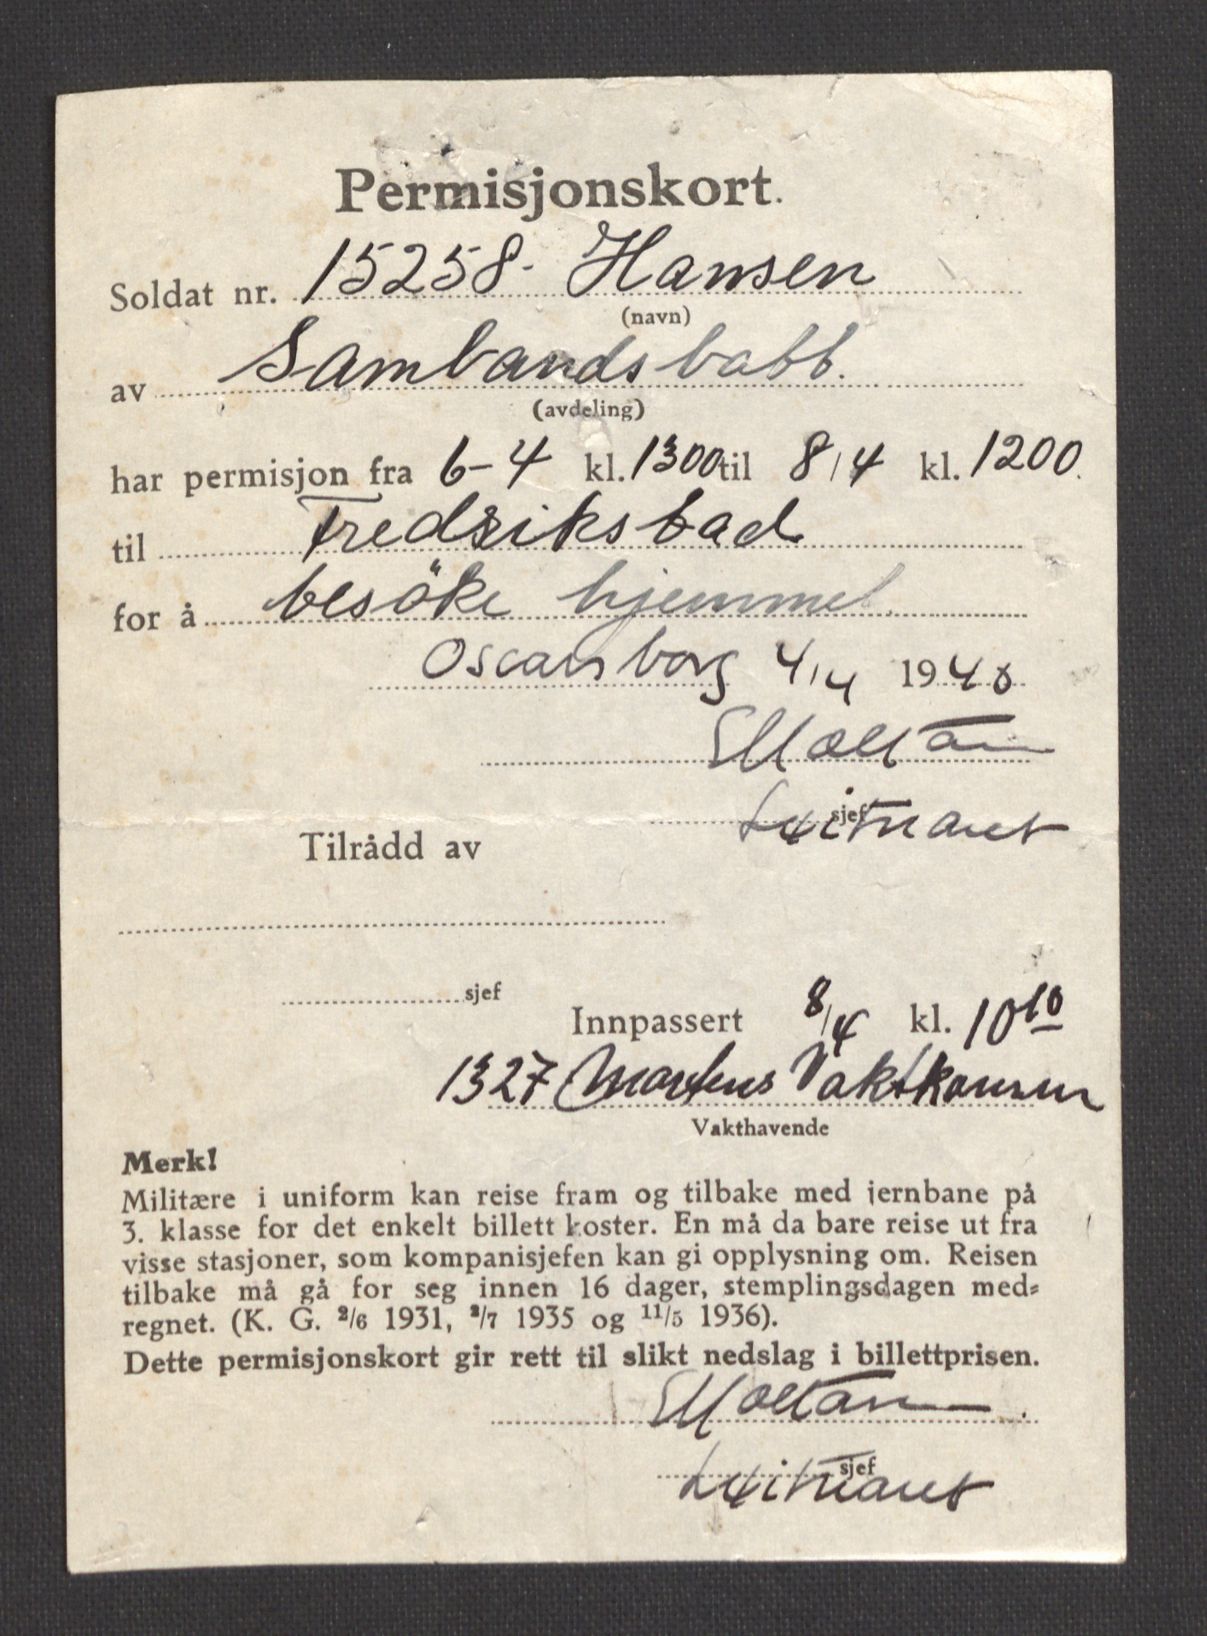 Permisjonskort.
Soldat nr. 15258- Hansen
(navn)
av Sambandsbatt.
(avdeling)
har permisjon fra 6-4 kl. 1300 til 8/4 kl. 1200
til Fredriksstad
for å besöke hjemmet.
Oscarsborg 4/4 1940
sjef
Tilrådd av
sjef
Innpassert 8/4 kl. 10 10
1327 Martens Vaktkomm
Vakthavende
Merk!
Militære i uniform kan reise fram og tilbake med jernbane på
3. klasse for det enkelt billett koster. En må da bare reise ut fra
visse stasjoner, som kompanisjefen kan gi opplysning om. Reisen
tilbake må gå for seg innen 16 dager, stemplingsdagen med-
regnet. (K. G. 2/6 1931, 2/7 1935 og 11/5 1936).
Dette permisjonskort gir rett til slikt nedslag i billettprisen.
sjef